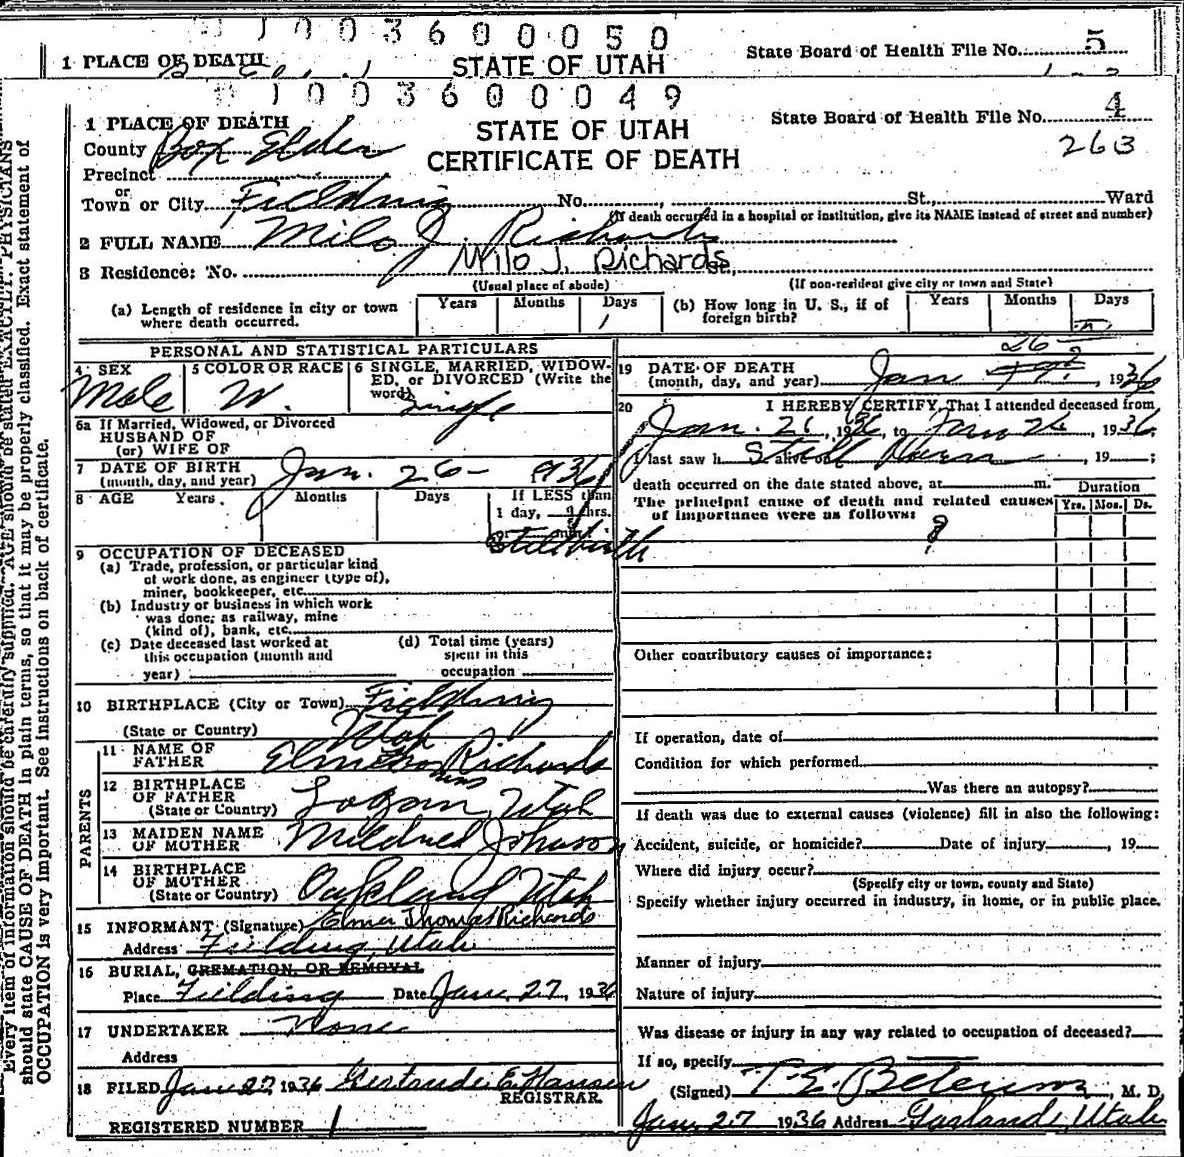 1003600050
State Board of Health File No. 5
1 PLACE OF DEATH
STATE OF UTAH
1003600049
State Board of Health File No. 4
263
1 PLACE OF DEATH
STATE OF UTAH
CERTIFICATE OF DEATH
County Box Elder
Precinct
or
Town or City Fielding No. , St., Ward
(If death occurred in a hospital or institution, give its NAME instead of street and number)
2 FULL NAME Milo J. Richards
Milo J. Richards
3 Residence: No.
(Usual place of abode) (If non-resident give city or town and State)
(a) Length of residence in city or town where death occurred. Years Months Days 1
(b) How long in U. S., if of foreign birth? Years Months Days
PERSONAL AND STATISTICAL PARTICULARS
4 SEX Male
5 COLOR OR RACE W.
6 SINGLE, MARRIED, WIDOWED, or DIVORCED (Write the word) Single
6a If Married, Widowed, or Divorced
HUSBAND OF
(or) WIFE OF
7 DATE OF BIRTH
(month, day, and year) Jan. 26 - 1936
8 AGE Years. Months Days If LESS than
1 day, hrs.
Stillbirth
9 OCCUPATION OF DECEASED
(a) Trade, profession, or particular kind
of work done, as engineer (type of),
miner, bookkeeper, etc.
(b) Industry or business in which work
was done; as railway, mine
(kind of), bank, etc.
(c) Date deceased last worked at
this occupation (month and
year)
(d) Total time (years)
spent in this
occupation
10 BIRTHPLACE (City or Town) Fielding
(State or Country) Utah
PARENTS
11 NAME OF
FATHER Elmer Thomas Richards
12 BIRTHPLACE
OF FATHER
(State or Country) Logan Utah
13 MAIDEN NAME
OF MOTHER Mildred Johnson
14 BIRTHPLACE
OF MOTHER
(State or Country) Oakland Utah
15 INFORMANT (Signature) Elmer Thomas Richards
Address Fielding, Utah
16 BURIAL, CREMATION, OR REMOVAL
Place Fielding Date Jan. 27, 1936
17 UNDERTAKER None
Address
18 FILED Jan 27 1936 Gertrude E. Hansen
REGISTRAR
REGISTERED NUMBER 1
19 DATE OF DEATH
(month, day, and year) Jan 26 1936
20 I HEREBY CERTIFY, That I attended deceased from
Jan. 26, 1936, to Jan 26, 1936.
I last saw h alive on Still Born, 19 ;
death occurred on the date stated above, at m.
The principal cause of death and related causes
of importance were as follows:
Duration
Yrs. Mos. Ds.
?
Other contributory causes of importance:
If operation, date of
Condition for which performed
Was there an autopsy?
If death was due to external causes (violence) fill in also the following:
Accident, suicide, or homicide? Date of injury , 19
Where did injury occur?
(Specify city or town, county and State)
Specify whether injury occurred in industry, in home, or in public place.
Manner of injury
Nature of injury
Was disease or injury in any way related to occupation of deceased?
If so, specify
(Signed) T. E. , M. D.
Jan 27 1936 Address Garland, Utah
Every item of information should be carefully supplied. AGE should be stated EXACTLY. PHYSICIANS
should state CAUSE OF DEATH in plain terms, so that it may be properly classified. Exact statement of
OCCUPATION is very important. See instructions on back of certificate.